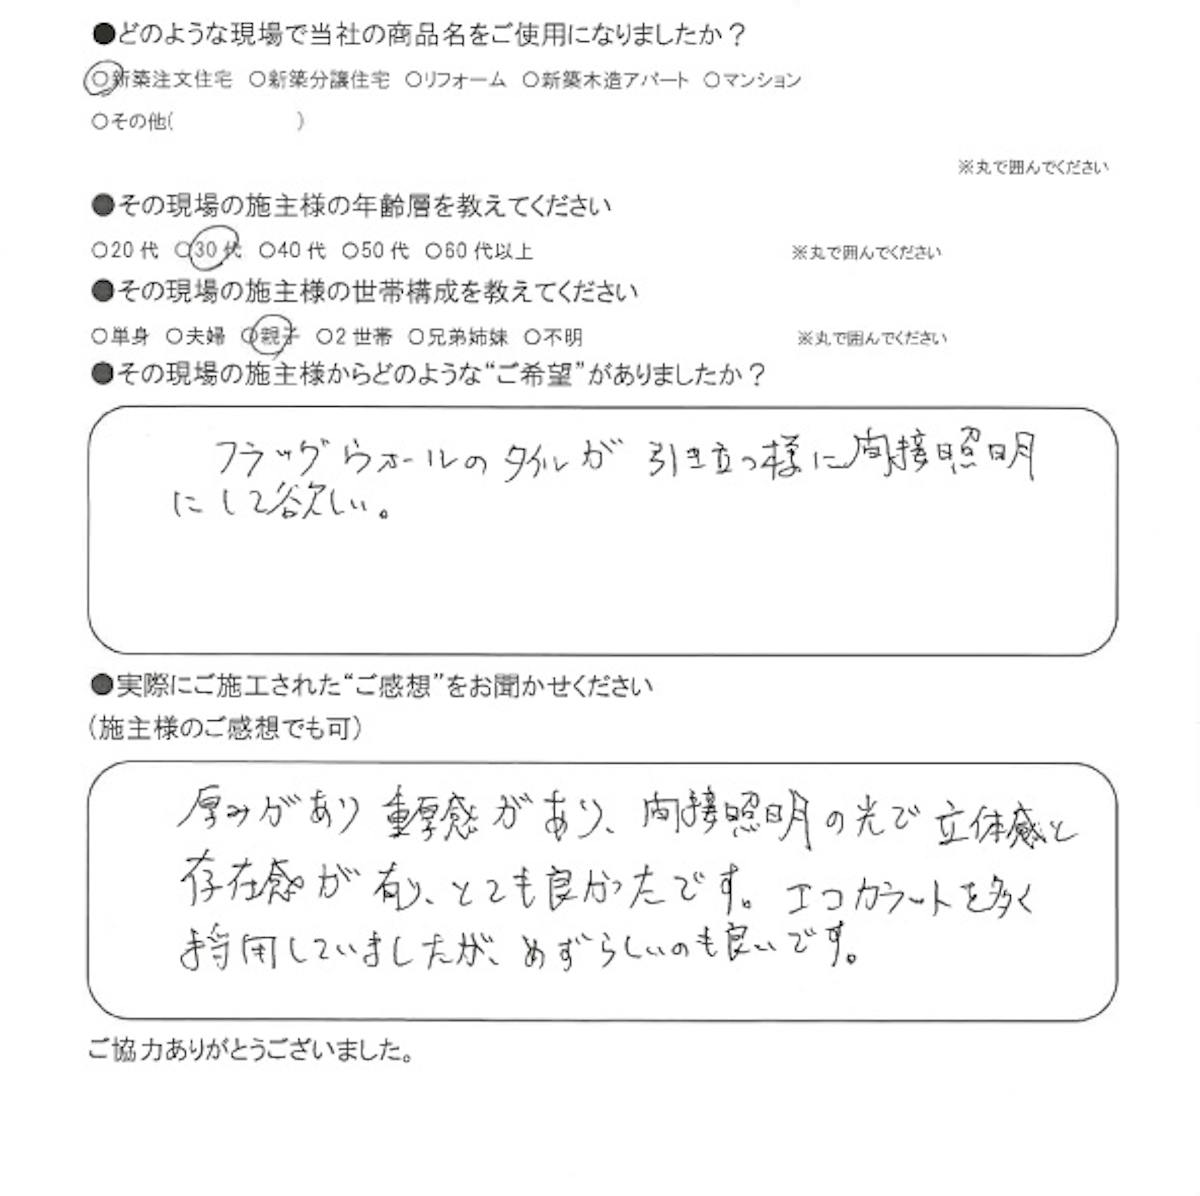 ●どのような現場で当社の商品名をご使用になりましたか？
○新築注文住宅 ○新築分譲住宅 ○リフォーム ○新築木造アパート ○マンション
○その他( )
※丸で囲んでください
●その現場の施主様の年齢層を教えてください
○20代 ○30代 ○40代 ○50代 ○60代以上 ※丸で囲んでください
●その現場の施主様の世帯構成を教えてください
○単身 ○夫婦 ○親子 ○2世帯 ○兄弟姉妹 ○不明 ※丸で囲んでください
●その現場の施主様からどのような“ご希望”がありましたか？
フラッグウォールのタイルが引き立つ様に間接照明
にして欲しい。
●実際にご施工された“ご感想”をお聞かせください
(施主様のご感想でも可)
厚みがあり重厚感があり、間接照明の光で立体感と
存在感が有り、とても良かったです。エコカラットを多く
採用していましたが、めずらしいのも良いです。
ご協力ありがとうございました。